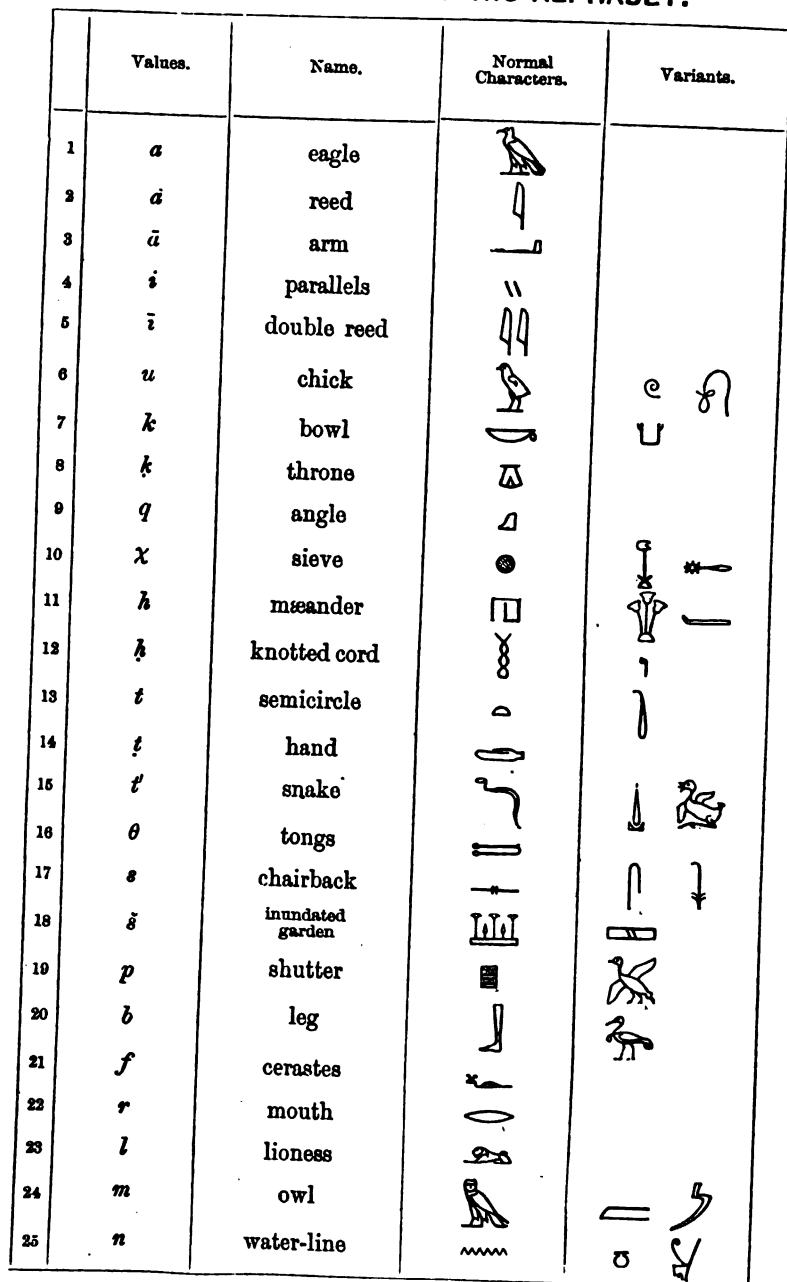 Values. Name. Normal Characters. Variants.
1 a eagle
2 ȧ reed
3 ā arm
4 i̇ parallels
5 ī double reed
6 u chick
7 k bowl
8 ḳ throne
9 q angle
10 χ sieve
11 h mæander
12 ḥ knotted cord
13 t semicircle
14 ṭ hand
15 t' snake
16 θ tongs
17 s chairback
18 š inundated garden
19 p shutter
20 b leg
21 f cerastes
22 r mouth
23 l lioness
24 m owl
25 n water-line